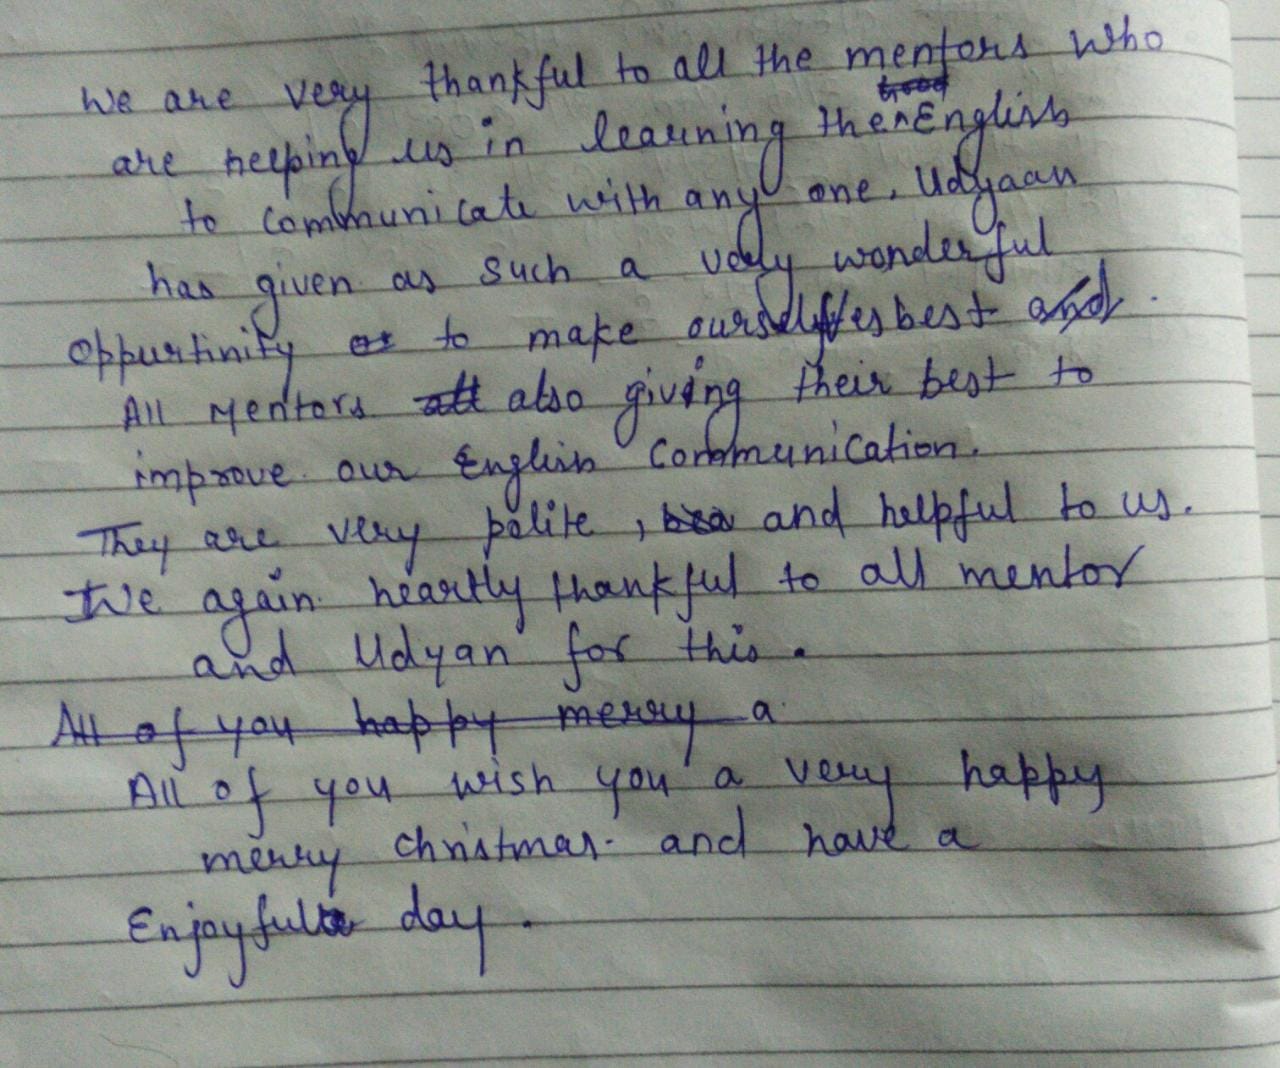 We are very thankful to all the mentors who
are helping us in learning the English
to communicate with any one. Udyaan
has given as such a very wonderful
oppurtinity to make ourselves best
All Mentors also giving their best to
improve our English Communication.
They are very polite, and helpful to us.
We again heartly thankful to all mentor
and Udyan for this.
All of you happy merry a
All of you wish you a very happy
merry christmas. and have a
Enjoyful day.